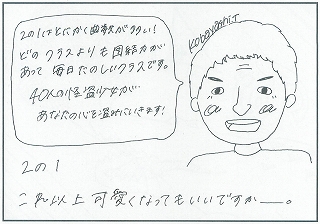 2の1はとにかく曲数が多い!
どのクラスよりも団結力が
あって毎日たのしいクラスです。
40人の怪盗少女が
あなたの心を盗みにいきます!
Kobayashi.T
2の1
これ以上可愛くなってもいいですかー。